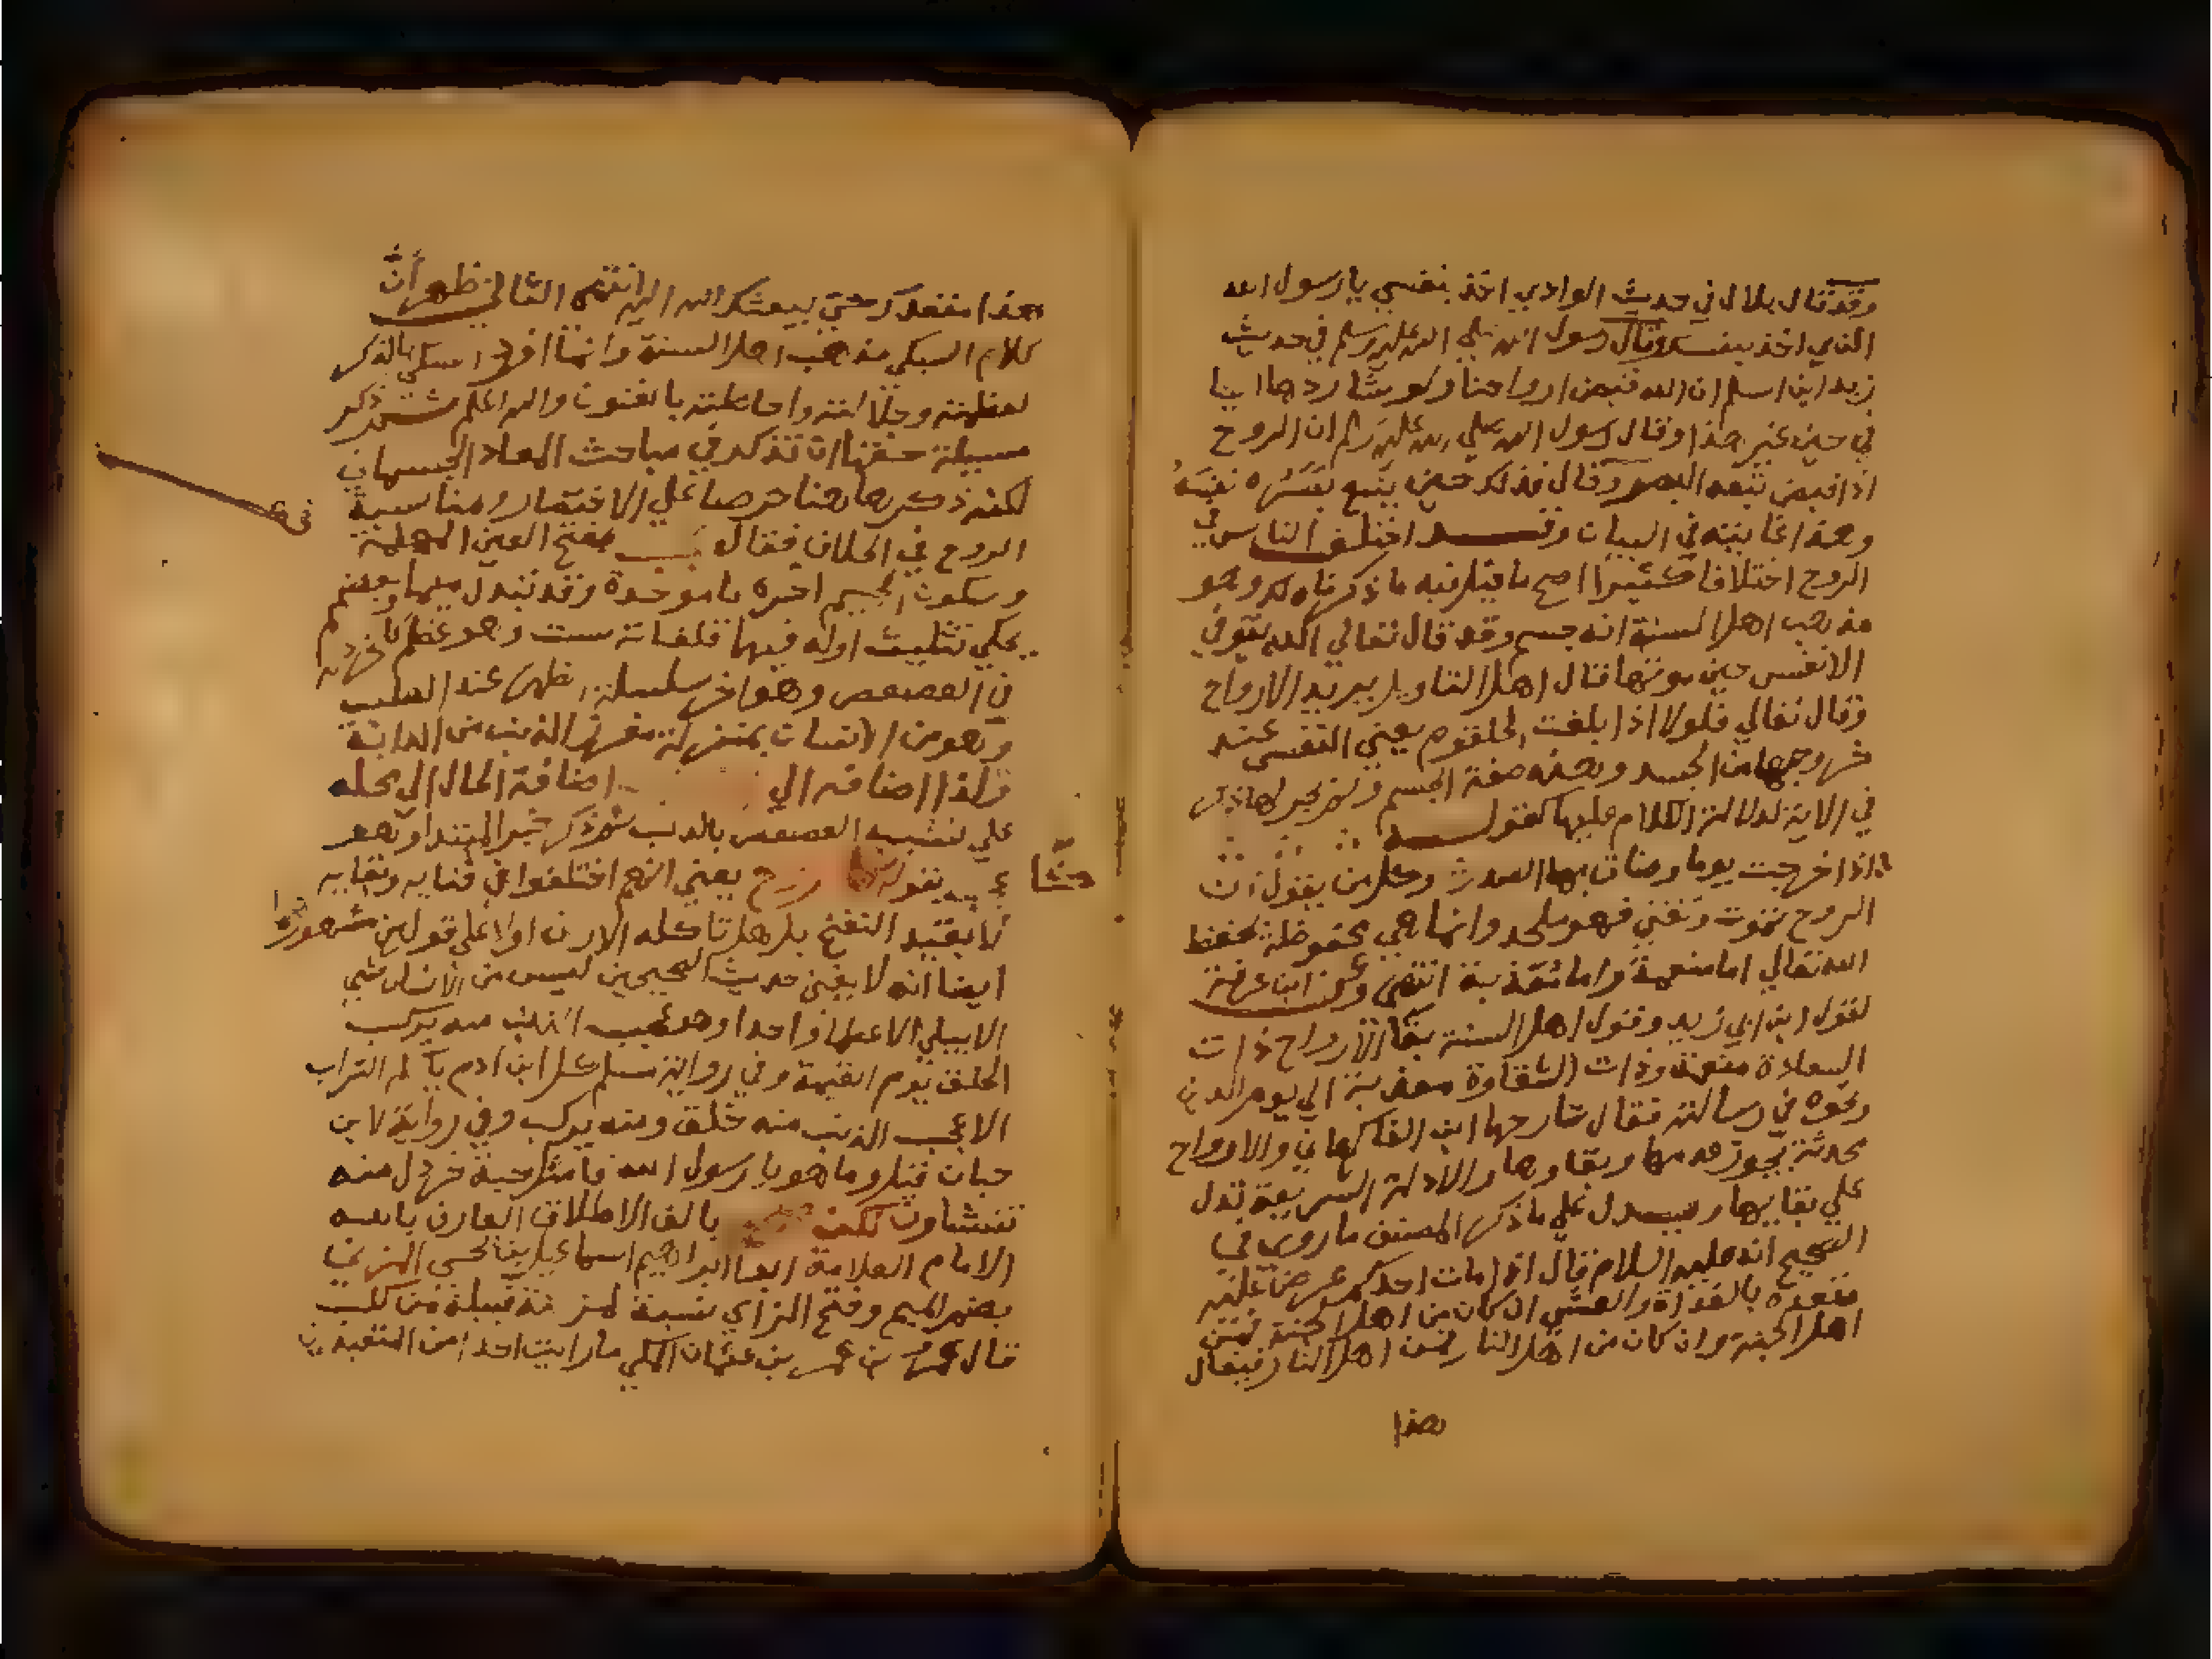 وقد قال بلال في حديث الوادي اخذ بنفسي يا رسول الله
الذي اخذ بنفسك وقال رسول الله صلي الله عليه وسلم في حديث
زيد ابن اسلم ان الله قبض ارواحنا ولو شا ردها الينا
في حين غير هذا وقال رسول الله صلي الله عليه وسلم ان الروح
اذا قبض تبعه البصر وقال فذلك حين يتبع بصره نفسه
وهذا غاية في البيان وقد اختلف الناس في
الروح اختلافا كثيرا اصح ما قيل فيه ما ذكرناه لك وهو
مذهب اهل السنة انه جسم وقد قال تعالي الله يتوفي
الانفس حين موتها قال اهل التاويل يريد الارواح
وقال تعالي فلولا اذا بلغت الحلقوم يعني النفس عند
خروجها من الجسد وهذه صفة الجسم ولم يجر لها ذكر
في الاية لدلالة الكلام عليها كقوله
اذا خرجت يوما وضاق بها الصدر وكل من يقول ان
الروح تموت وتفني فهو ملحد وانما هي محفوظة بحفظ
الله تعالي اما منعمة واما معذبة انتهي وعن ابن عرفة
لقول ابن ابي زيد وقول اهل السنة بقا الارواح ذات
السعادة منعمة وذات الشقاوة معذبة الي يوم الدين
ونحوه في رسالته فقال شارحها ابن الفاكهاني والارواح
محدثة يجوز عدمها وبقاوها والادلة الشرعية تدل
علي بقايها ويدل علي ما ذكره المصنف ما روي في
الصحيح انه عليه السلام قال اذا مات احدكم عرض عليه
مقعده بالغداة والعشي ان كان من اهل الجنة فمن
اهل الجنة وان كان من اهل النار فمن اهل النار فيقال
هذا
هذا مقعدك حتي يبعثك الله اليه انتهي الثاني ظهر أنّ
كلام السبكي مذهب اهل السنة وانما افرد السبكي بالذكر
لعظمته وجلالته واحاطته بالفنون والله اعلم ثم ذكر
مسيلة حقها ان تذكر في مباحث المعاد الجسماني
لكنه ذكرها هنا حرصا علي الاختصار ومناسبة
الروح في الخلاف فقال عجب بفتح العين المهملة
وسكون الجيم اخره با موحدة وقد تبدل ميما وبعضهم
يحكي تثليث اوله فيهما فلغاته ست وهو عظم كالخردلة
في العصعص وهو اخر سلسلة الظهر عند الصلب
وهو من الانسان بمنزلة مغرز الذنب من الدابة
ولذا اضافه الي اضافة الحال الي محله
علي تشبيه العصعص بالذنب ثم ذكر خبر المبتدا وهو
بقوله كالروح يعني انهم اختلفوا في فنايه وبقايه
لا بقيد النفخ بل هل تاكله الارض اولا علي قولين مشهورهما
ايضا انه لا يفني حديث الصحيحين ليس من الانسان شي
الا يبلي الا عظما واحدا وهو عجب الذنب منه يركب
الخلق يوم القيمة وفي رواية مسلم كل ابن ادم ياكله التراب
الا عجب الذنب منه خلق ومنه يركب وفي رواية لابن
حبان قيل وما هو يا رسول الله قال مثل حبة خردل منه
تنشاون لكن بالف الاطلاق العارف بالله
الامام العلامة ابو ابراهيم اسماعيل بن يحيى المزني
بضم الميم وفتح الزاي نسبة لمزينة قبيلة من كلب
قال عمرو بن عمر بن عثمان المكي ما رايت احدا من المتعبدين